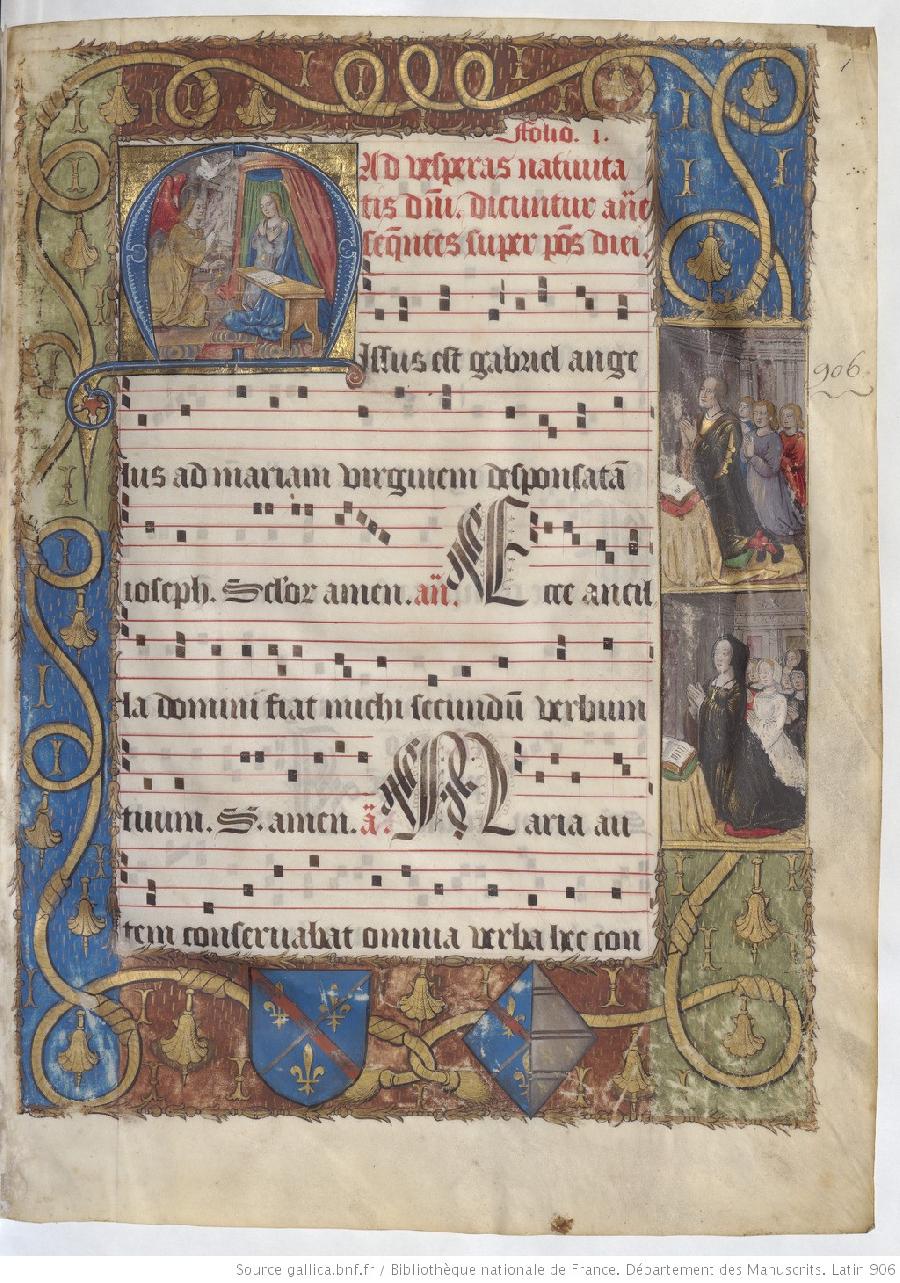 Folio. 1.
1
Ad vesperas nativita
tis dñi. dicuntur añe
seq̃ntes super p̃os diei.
Missus est gabriel ange
906.
lus ad mariam virginem desponsatã
ioseph. Sclõr amen. añ. Ecce ancil
la domini fiat michi secundũ verbum
tuum. S. amen. ã. Maria au
tem conservabat omnia verba hec con
Source gallica.bnf.fr / Bibliothèque nationale de France. Département des Manuscrits. Latin 906